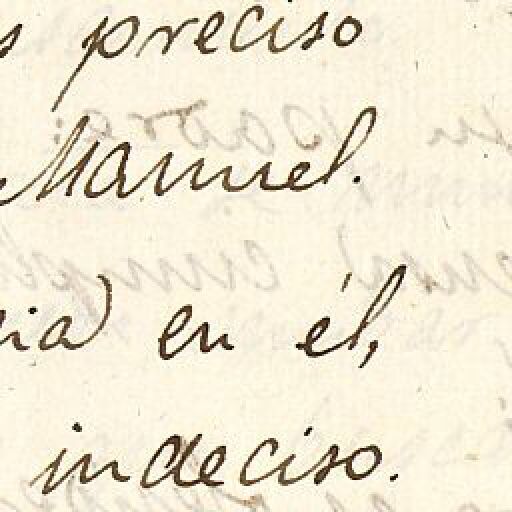 s preciso
Manuel.
ia) en él,
indeciso.